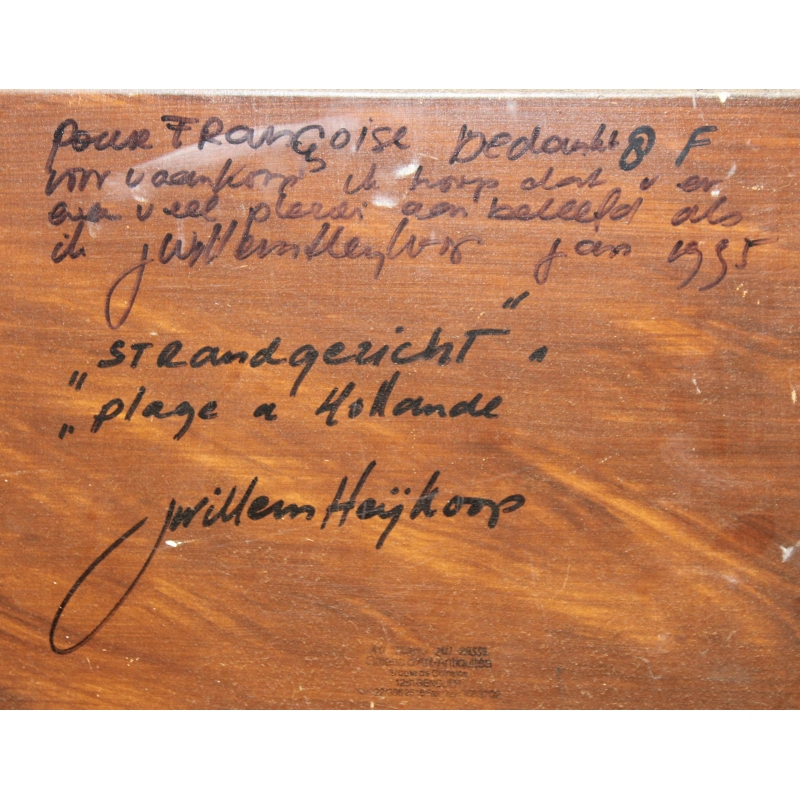 Pour FRANÇOISE Bedankt F
voor u aankoop ik hoop dat u er
even veel plezier aan beleefd als
ik JWillem Heykoop jan 1995
"STRandgezicht".
"plage a Hollande
JWillem Heijkoop